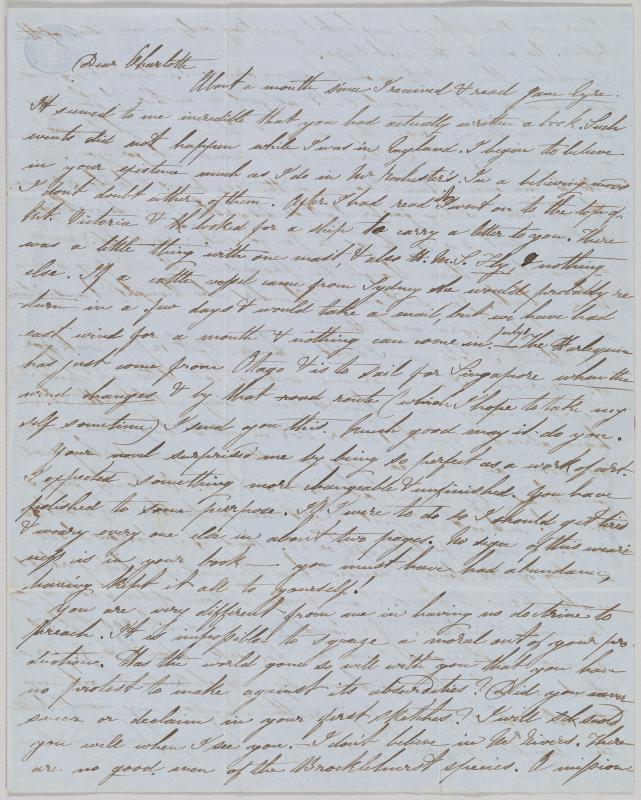 Dear Charlotte
About a month since I received & read Jane Eyre.
It seemed to me incredible that you had actually written a book. Such
events did not happen while I was in England. I begin to believe
in your existence much as I do in Mr Rochester's. In a believing mood
I don't doubt either of them. After I had read it I went on to the top of
Mt. Victoria & looked for a ship to carry a letter to you. There
was a little thing with one mast, & also H.M.S. Fly, & nothing
else. If a cattle vessel came from Sydney she would probably re
turn in a few days & would take a mail, but we have had
east wind for a month & nothing can come in.
July 1 The Harlequin
has just come from Otago & is to sail for Singapore when the
wind changes & by that road route (which I hope to take my
self sometime) I send you this. Much good may it do you.
Your novel surprised me by being so perfect as a work of art.
I expected something more changeable & unfinished. You have
polished to some purpose. If I were to do so I should get tired
& weary every one else in about two pages. No sign of this weari
ness is in your book — you must have had abundance,
having kept it all to yourself!
You are very different from me in having no doctrine to
preach. It is impossible to squeeze a moral out of your pro
duction. Has the world gone so well with you that you have
no protest to make against its absurdities? Did you never
sneer or declaim in your first sketches? I will scold
you well when I see you. — I don't believe in Mr Rivers. There
are no good men of the Brocklehurst species. A mission